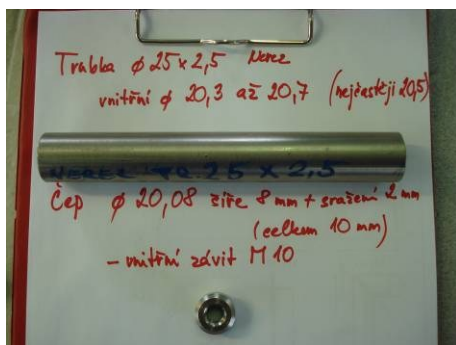 Trubka ø 25 x 2,5 Nerez
vnitřní ø 20,3 až 20,7 (nejčastěji 20,5)
NEREZ TR. 25 x 2,5
Čep ø 20,08 šíře 8 mm + sražení 2 mm
(celkem 10 mm)
- vnitřní závit M10